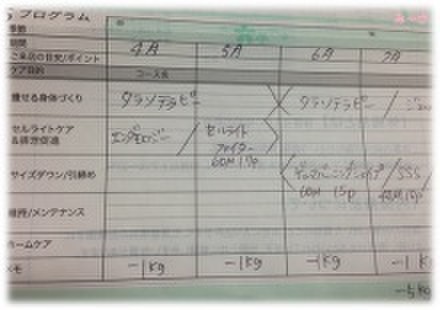 プログラム
季節
期間
ご来店の目安/ポイント
4月 5月 6月 7月
ケア目的 コース名
痩せる身体づくり タラソテラピー タラソテラピー
セルライトケア
&排泄促進
エンダモロジー / セルライト
ファイター
60M 15p
サイズダウン/引締め
/ SSS
60M 15p
維持/メンテナンス
ホームケア
メモ -1kg -1kg -1kg -1k
-5kg